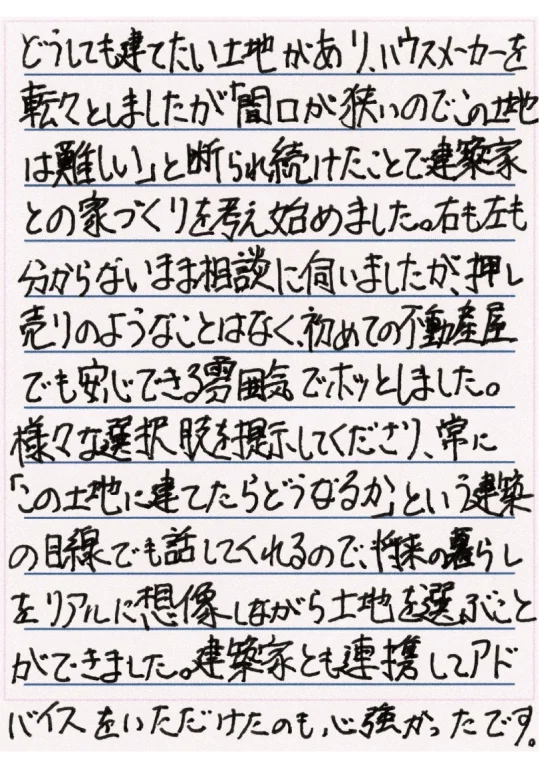 どうしても建てたい土地があり、ハウスメーカーを
転々としましたが「間口が狭いのでこの土地
は難しい」と断られ続けたことで建築家
との家づくりを考え始めました。右も左も
分からないまま相談に伺いましたが、押し
売りのようなことはなく、初めての不動産屋
でも安心できる雰囲気でホッとしました。
様々な選択肢を提示してくださり、常に
「この土地に建てたらどうなるか」という建築
の目線でも話してくれるので、将来の暮らし
をリアルに想像しながら土地を選ぶこと
ができました。建築家とも連携してアド
バイスをいただけたのも、心強かったです。